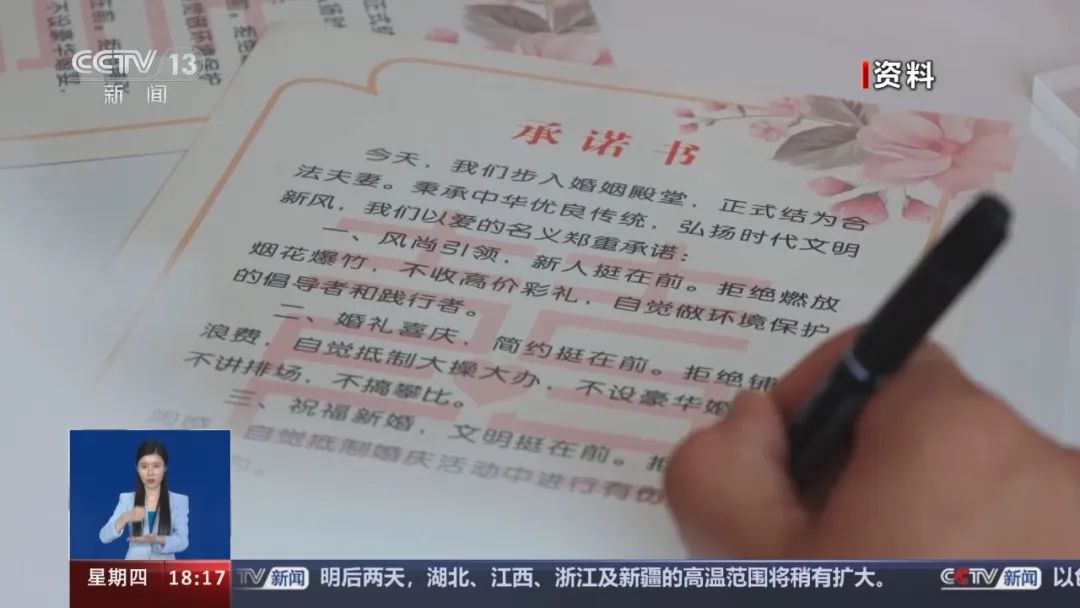 CCTV 13
新闻
资料
承诺书
今天，我们步入婚姻殿堂，正式结为合
法夫妻。秉承中华优良传统，弘扬时代文明
新风，我们以爱的名义郑重承诺：
一、风尚引领，新人挺在前。拒绝燃放
烟花爆竹，不收高价彩礼，自觉做环境保护
的倡导者和践行者。
二、婚礼喜庆，简约挺在前。拒绝铺
浪费，自觉抵制大操大办，不设豪华婚
不讲排场，不搞攀比。
三、祝福新婚，文明挺在前。拒
自觉抵制婚庆活动中进行有伤
星期四 18:17
TV 新闻 明后两天，湖北、江西、浙江及新疆的高温范围将稍有扩大。 CCTV 新闻 以